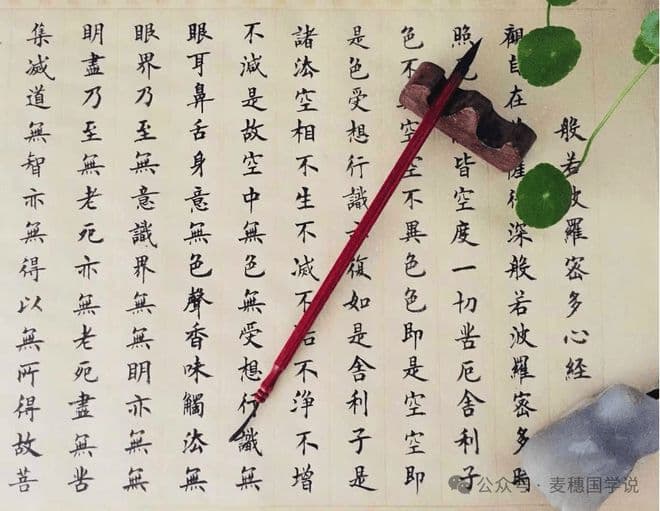 般若波羅密多心經
觀自在薩行深般若波羅密多時
照皆空度一切苦厄舍利子
色不空空不異色色即是空空即
是色受想行識復如是舍利子是
諸法空相不生不滅不不淨不增
不滅是故空中無色無受想行識無
眼耳鼻舌身意無色聲香味觸法無
眼界乃至無意識界無無明亦無無
明盡乃至無老死亦無老死盡無苦
集滅道無智亦無得以無所得故菩
公众号·麦穗国学说